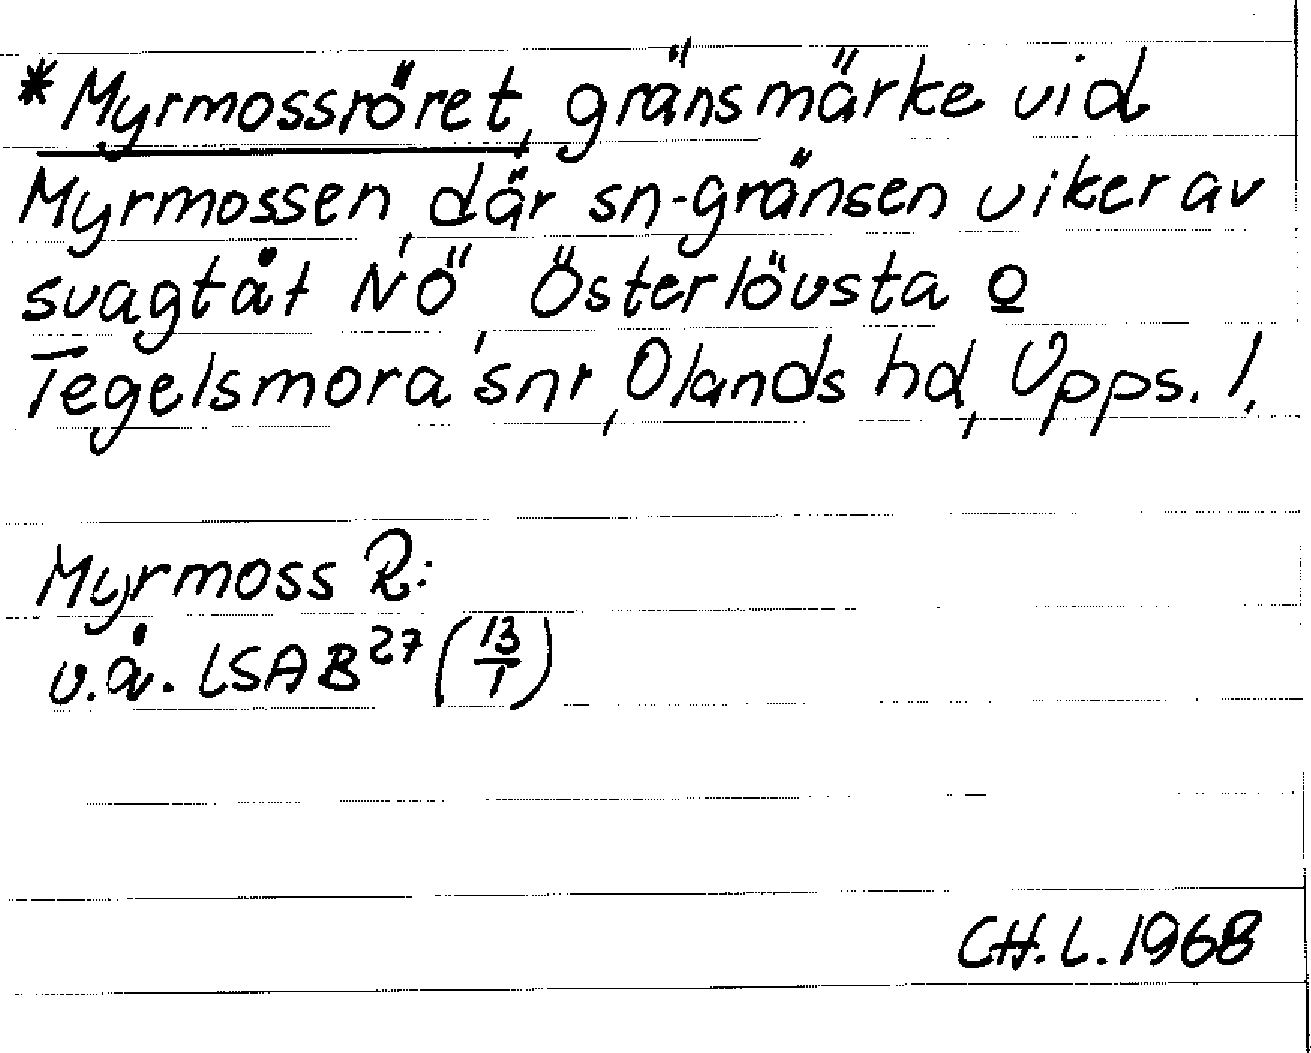 *Myrmossröret, gränsmärke vid
Myrmossen, där sn-gränsen viker av
svagt åt NÖ, Österlövsta o
Tegelsmora snr, Olands hd, Upps. l.
Myrmoss R:
v.å. LSAB27 (13/1)
CH.L. 1968